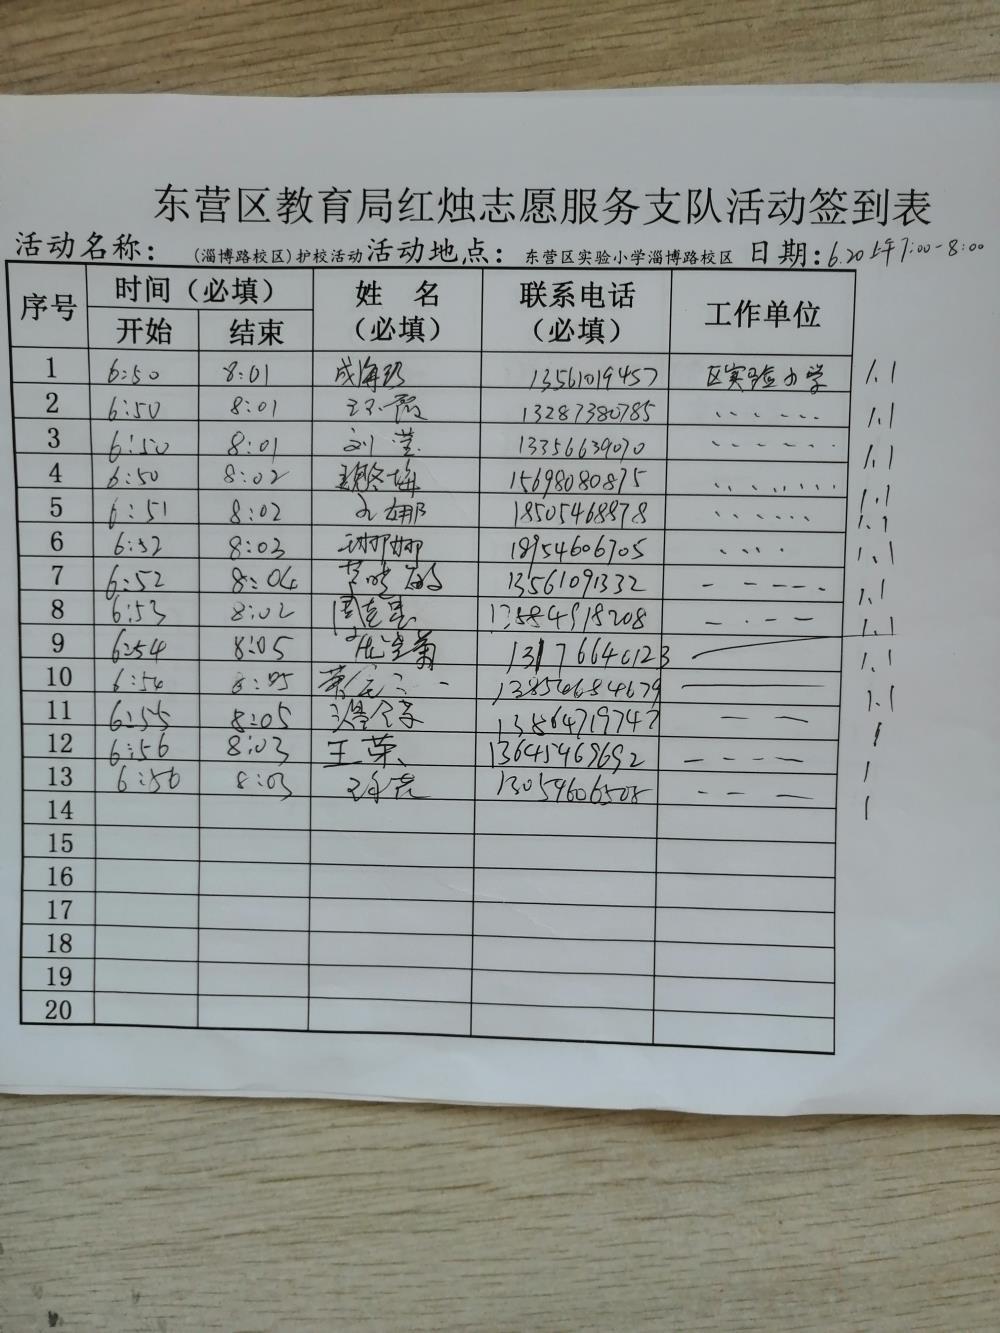 东营区教育局红烛志愿服务支队活动签到表
活动名称：（淄博路校区）护校活动 活动地点：东营区实验小学淄博路校区 日期：6.20上午7:00-8:00
序号 时间（必填） 姓 名（必填） 联系电话（必填） 工作单位
开始 结束
1 6:50 8:01 成海珍 13561019457 区实验小学 1.1
2 6:50 8:01 13287380785 1.1
3 6:50 8:01 刘莹 13356639070 1.1
4 6:50 8:02 15698080875 1.1
5 6:51 8:02 孔娜 18505468878 1.1
6 6:52 8:03 18954606705 1.1
7 6:52 8:04 13561091332 1.1
8 6:53 8:02 13884918208 1.1
9 6:54 8:05 13176640123 1.1
10 6:54 8:05 1.1
11 6:55 8:05 13864719747 1
12 6:56 8:03 王荣 13645469692 1
13 6:56 8:03 13059606508 1
14
15
16
17
18
19
20